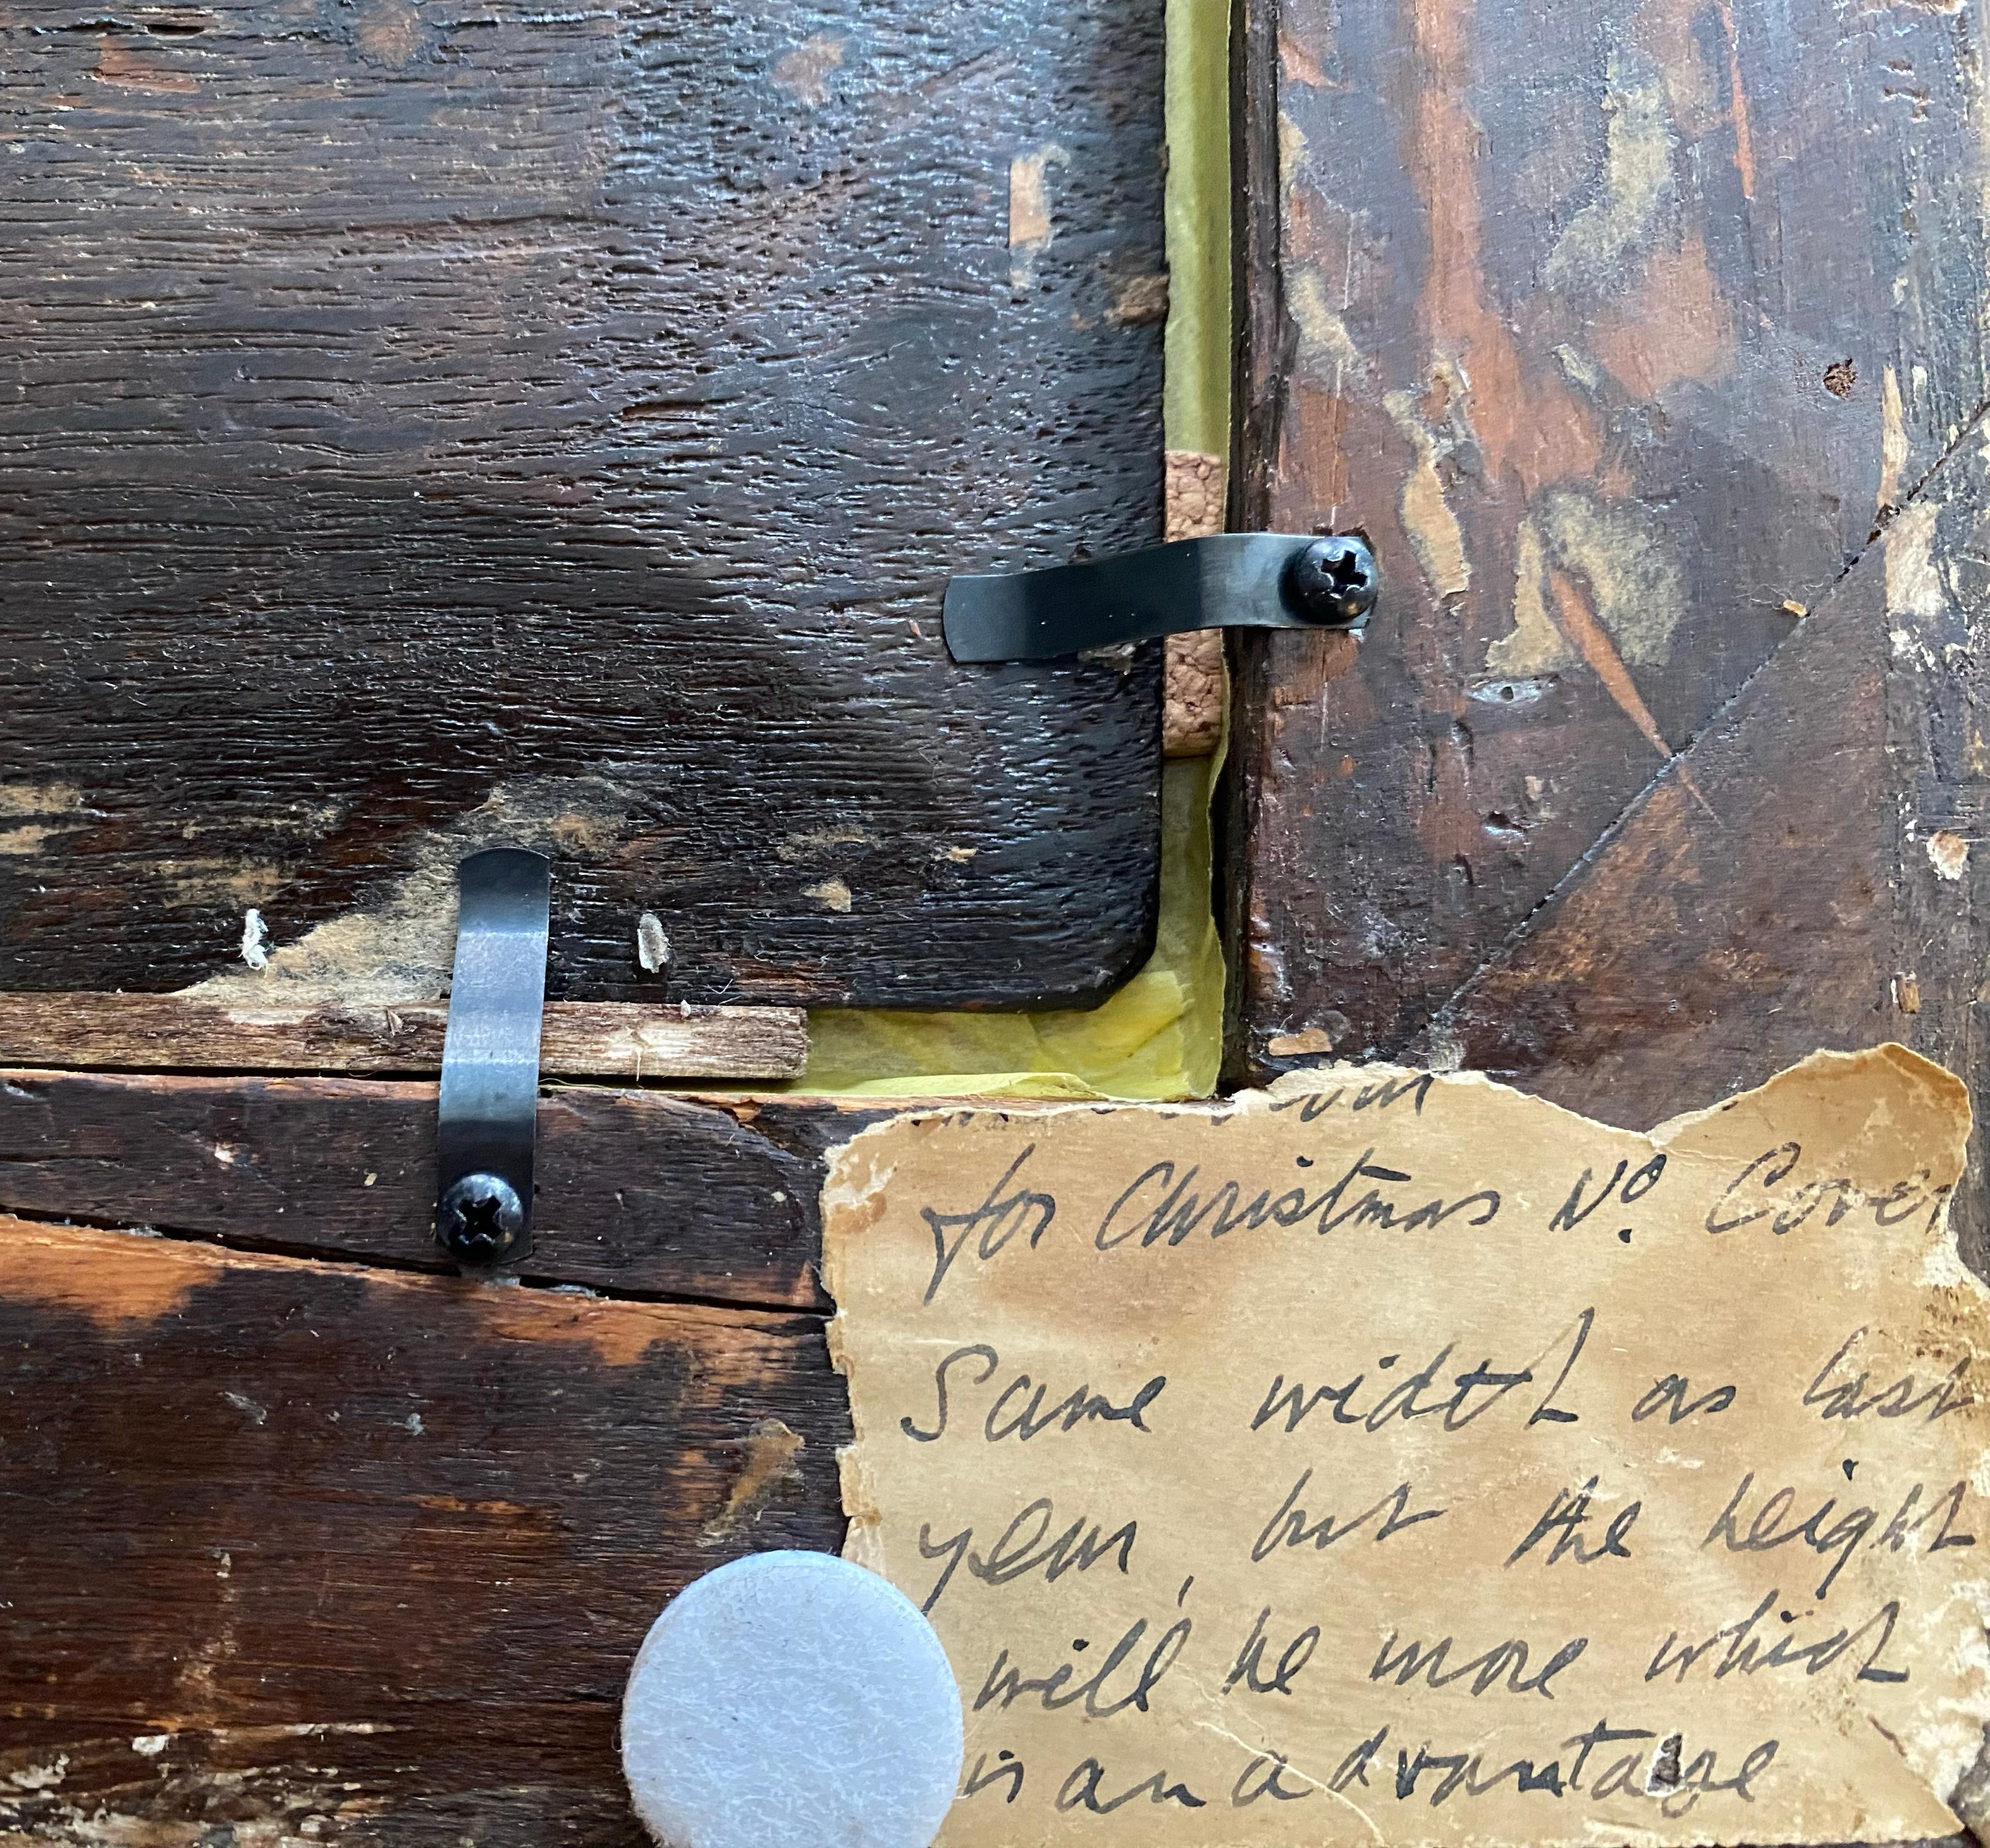 for Christmas Nº Cover
Same width as last
year, but the height
will be more which
is an advantage